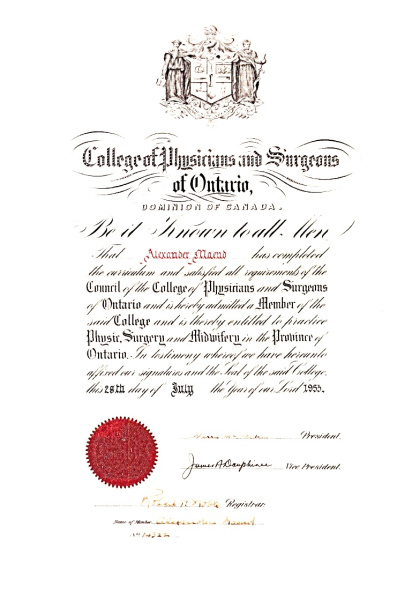 College of Physicians and Surgeons
of Ontario,
DOMINION OF CANADA.
Be it Known to all Men
That Alexander Macud has completed
the curriculum and satisfied all requirements of the
Council of the College of Physicians and Surgeons
of Ontario and is hereby admitted a Member of the
said College and is thereby entitled to practice
Physic, Surgery and Midwifery in the Province of
Ontario. In testimony whereof we have hereunto
affixed our signatures and the Seal of the said College,
this 28th day of July the Year of our Lord 1955.
President.
James A Dauphinee Vice President.
Registrar.
Name of Member Alexander
No